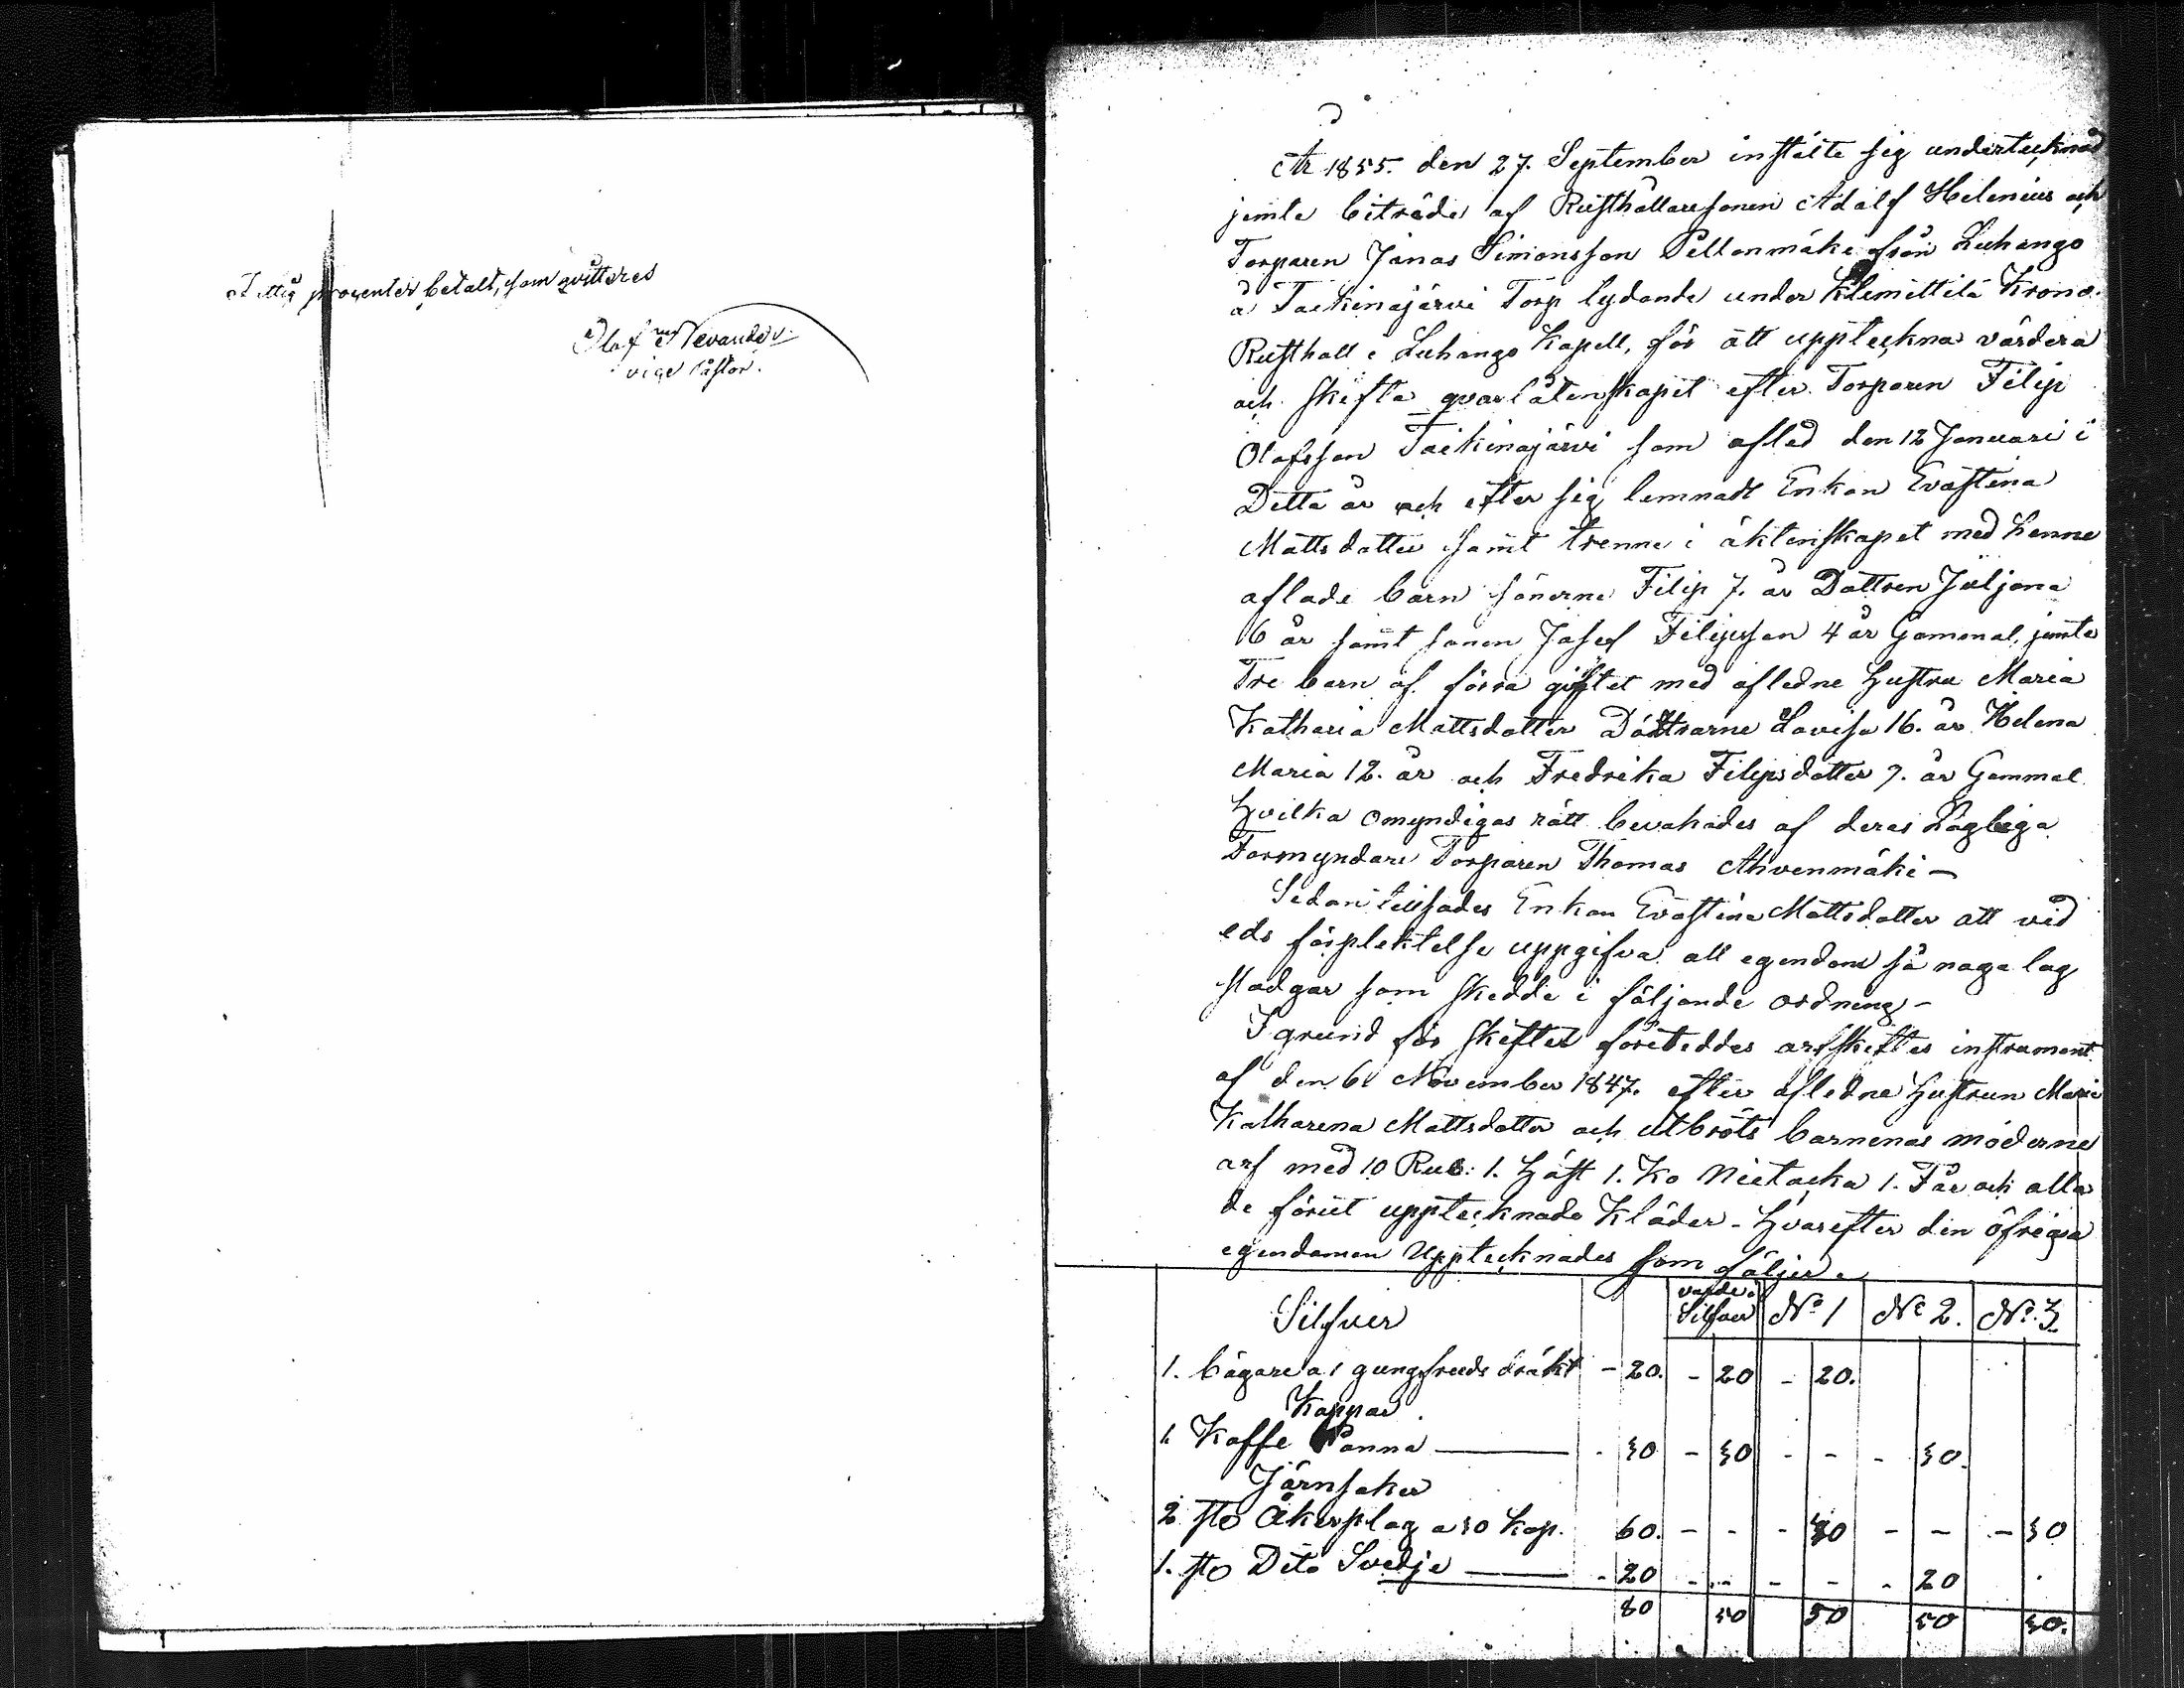 Fattig procenter betalt, som qvitteras
Olof Nevander
vice Pastor.
År 1855. den 27. September instälte sig undertecknad
jemte biträde af Rusthållaresonen Adolf Helenius och
Torparen Jonas Simonsson Peltonmäki från Luhango
å Taikinajärvi Torp lydande under Klemettilä Krono
Rusthåll i Luhango Kapell, för att uppteckna värdera
och skifta qvarlåtenskapet efter Torparen Filip
Olofsson Taikinajärvi som afled den 12 Januari i
Detta år och efter sig lemnadt Enkan Evastina
Mattsdotter samt trenne i äktenskapet med henne
aflade barn sönerne Filip 7. år Dottren Juljana
6 år samt sonen Josef Filipsson 4 år Gammal, jemte
Tre barn af förra giftet med afledne hustru Maria
Katharia Mattsdotter Döttrarne Lovisa 16. år Helena
Maria 12. år och Fredrika Filipsdotter 9. år Gammal
hvilka omyndigas rätt bevakades af deras Lagliga
Formyndare Torparen Thomas Ahvenmäki —
Sedan tillsades Enkan Evastina Mattsdotter att vid
eds förplektelse uppgifva all egendom så noga lag
stadgar som skedde i följande ordning —
I grund för skiftet företeddes arfskiftes instrument
af den 6 November 1847. efter afledne hustrun Maria
Katharena Mattsdotter och utbröts barnenas möderne
arf med 10 Rub: 1. häst 1. Ko Nietacka 1. Får och alla
de förut upptecknade Kläder - hvarefter den öfriga
egendomen Upptecknades som följer.
Silfver värde i Silfver No 1 No 2. No. 3
1. bägare a 1 gungfruds dräkt - 20. - 20 - 20.
Koppar
1. Kaffe Panna — - 30 - 30 - - - 30.
Järnsaker
2 st Åkerplog a 30 kop. 60. - - - 30 - - - 30
1. st Dito Svedje — - 20 - - - - - 20
80 50 50 50 30.